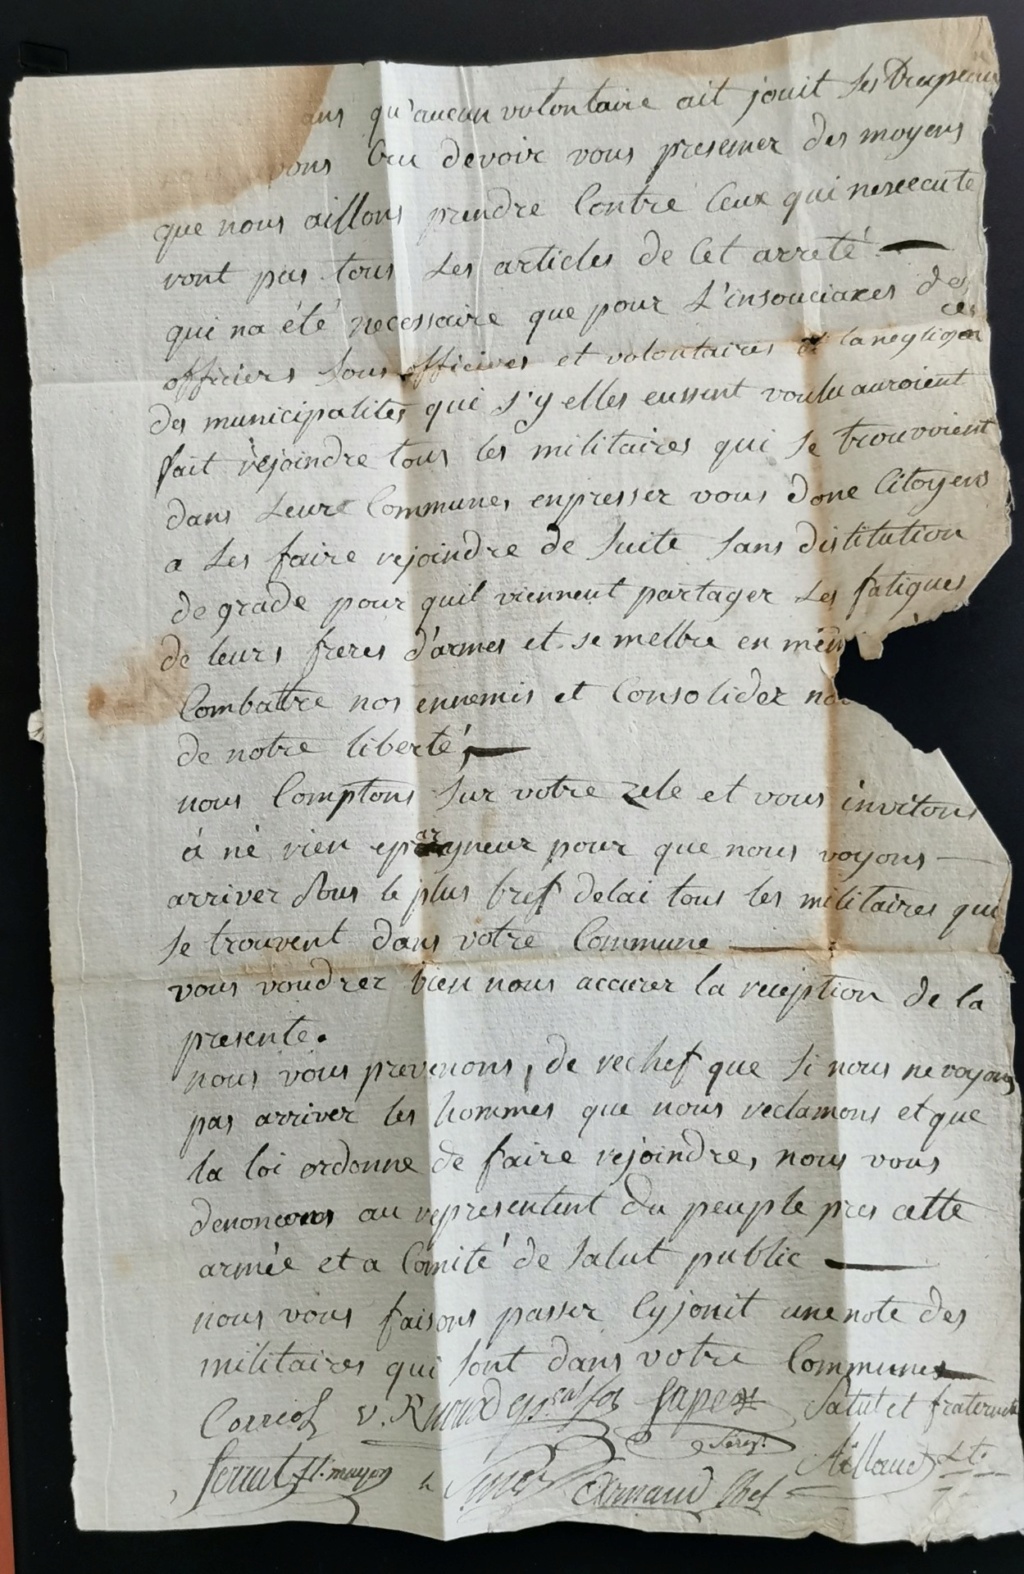 ans qu'aucun volontaire ait jouit les Drapeaux
vons Cru devoir vous presenter des moyens
que nous aillons prendre Contre Ceux qui nexecute
ront pas tous Les articles de Cet arreté
qui na été necessaire que pour L'insouciances des
officiers Sous officiers et volontaires et la negligen ces
des municipalités qui s'y elles eussent voulu auroient
fait rejoindre tous les militaires qui se trouvoient
dans Leure Communes, enpresser vous donc Citoyens
a Les faire rejoindre de Suite Sans distitution
de grade pour quil viennent partager Les fatigues
de leurs freres d'armes et se mettre en mêm
Combattre nos ennemis et Consolider no
de notre liberté,
nous Comptons Sur votre zele et vous invitons
à né rien eparyneur pour que nous voyons
arriver Sous le plus bref delai tous les militaires qui
Se trouvent dans votre Commune
vous voudrez bien nous accurer la reception de la
presente.
nous vous prevenons, de rechef que Si nous ne voyons
pas arriver les hommes que nous reclamons et que
la loi ordonne de faire rejoindre, nous vous
denoncerons au representent du peuple pres cette
armée et a Comité de Salut public
nous vous faisons passer Cyjonit une note des
militaires qui Sont dans votre Communes
Corriol Sape Salut et fraternité
Sergt.
Ferrat Armand Chef Aillaud Lt.